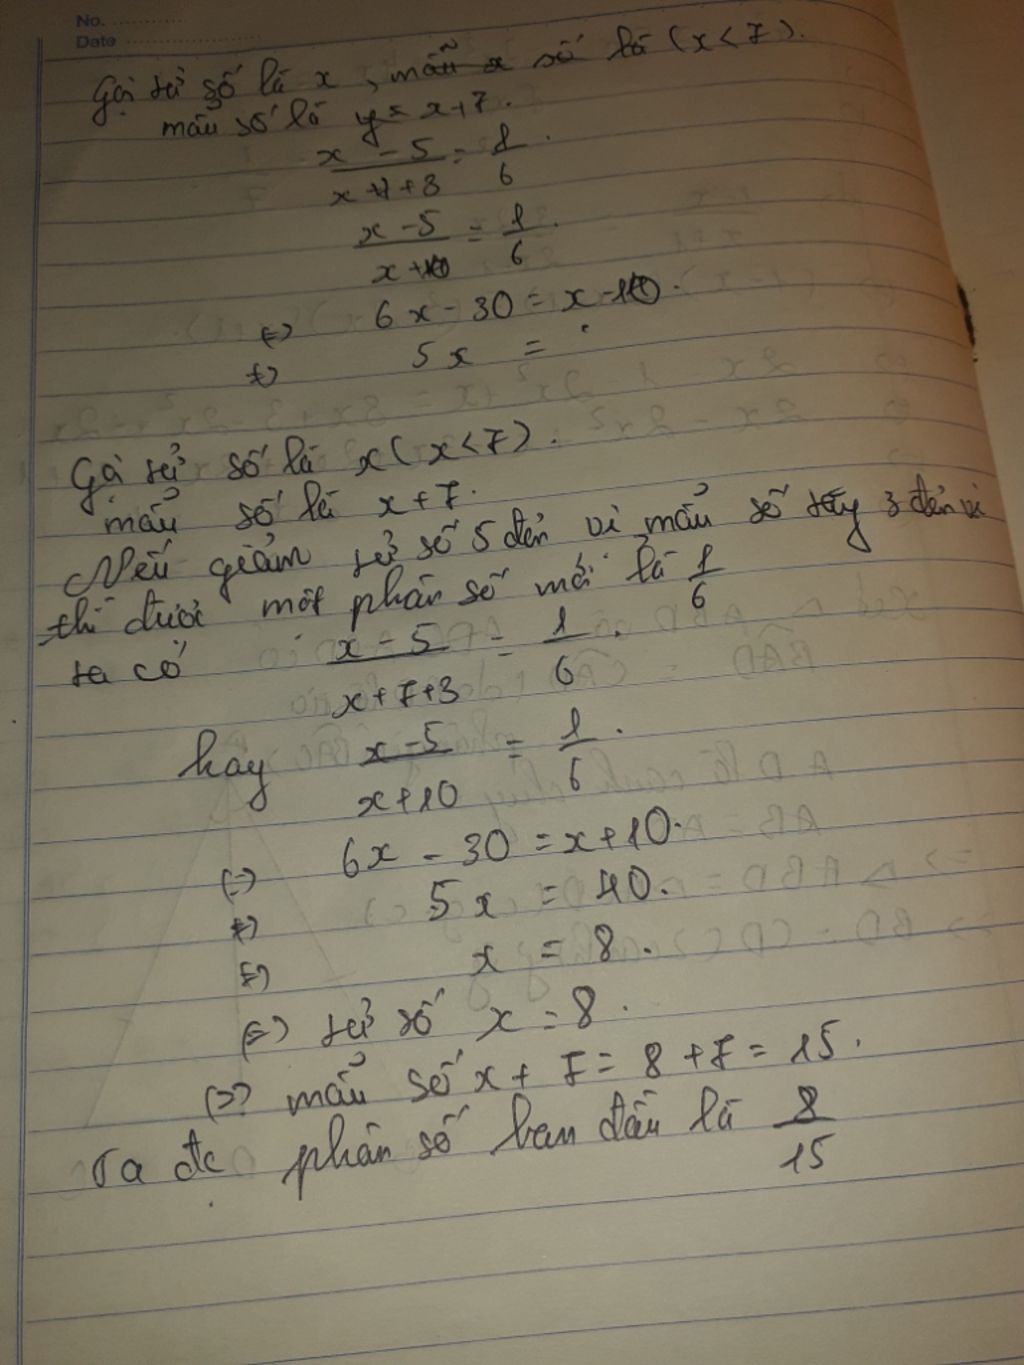 No.
Date
Gọi tử số là x, mẫu x số là (x < 7).
mẫu số là y = x+7.
x - 5 / x+7+3 = 1/6.
x - 5 / x+10 = 1/6.
(=) 6x - 30 = x - 10.
(=) 5x =
Gọi tử số là x (x < 7).
mẫu số là x + 7.
Nếu giảm tử số 5 đơn vì mẫu số tăy 3 đơn vì
thì được một phân số mới là 1/6
ta có x - 5 / x+7+3 = 1/6.
hay x - 5 / x+10 = 1/6.
(=) 6x - 30 = x+10.
(=) 5x = 40.
(=) x = 8.
(=) tử số x = 8.
(=) mẫu số x + 7 = 8 + 7 = 15.
Ta đc phân số ban đầu là 8/15